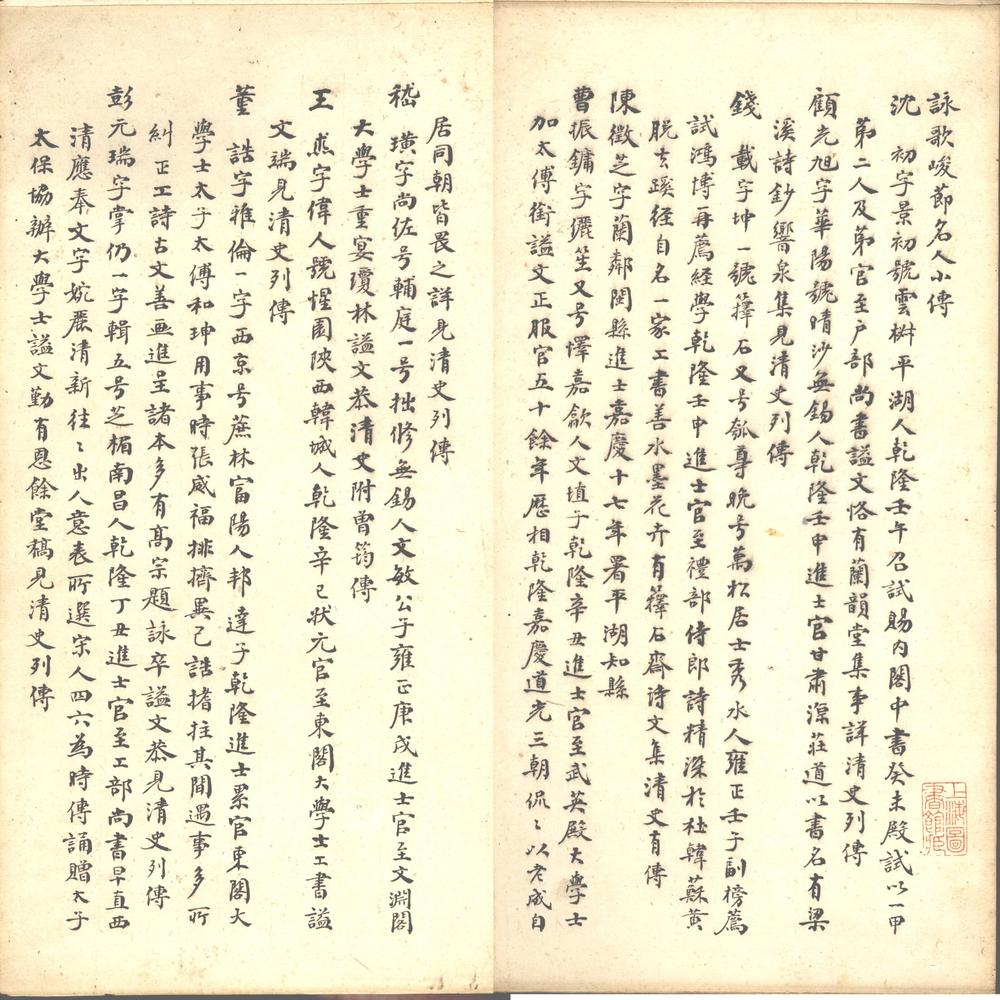 詠歌峻節名人小傳
沈 初字景初號雲椒平湖人乾隆壬午召試賜內閣中書癸未殿試以一甲
第二人及第官至戶部尚書謚文恪有蘭韻堂集事詳清史列傳
顧光旭字華陽號晴沙無錫人乾隆壬申進士官甘肅涼莊道以書名有梁
溪詩鈔響泉集見清史列傳
錢 載字坤一號籜石又号瓠尊晚号萬松居士秀水人雍正壬子副榜薦
試鴻博再薦經學乾隆壬申進士官至禮部侍郎詩精深於杜韓蘇黃
脫去蹊徑自名一家工書善水墨花卉有籜石齋詩文集清史有傳
陳徵芝字蘭鄰閩縣進士嘉慶十七年署平湖知縣
曹振鏞字儷笙又号懌嘉歙人文埴子乾隆辛丑進士官至武英殿大學士
加太傅銜謚文正服官五十餘年歷相乾隆嘉慶道光三朝侃〻以老成自
居同朝皆畏之詳見清史列傳
嵇 璜字尚佐号輔庭一号拙修無錫人文敏公子雍正庚戌進士官至文淵閣
大學士重宴瓊林謚文恭清史附曾筠傳
王 杰字偉人號惺園陝西韓城人乾隆辛巳狀元官至東閣大學士工書謚
文端見清史列傳
董 誥字雅倫一字西京号蔗林富陽人邦達子乾隆進士累官東閣大
學士太子太傅和珅用事時張威福排擠異己誥搘拄其間遇事多所
糾正工詩古文善畫進呈諸本多有高宗題詠卒謚文恭見清史列傳
彭元瑞字掌仍一字輯五号芝楣南昌人乾隆丁丑進士官至工部尚書早直西
清應奉文字婉麗清新往〻出人意表所選宋人四六為時傳誦贈太子
太保協辦大學士謚文勤有恩餘堂稿見清史列傳
上海圖
書館藏